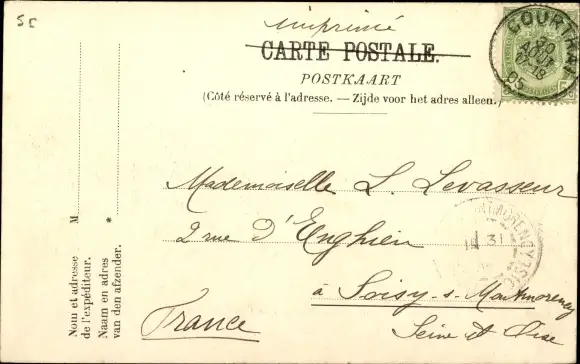 5E
imprimé
CARTE POSTALE.
POSTKAART
(Côté réservé à l'adresse. — Zijde voor het adres alleen.)
COURTRAI
05
Mademoiselle L. Levasseur
2 rue d'Enghien
à Soisy-s-Montmorency
Seine et Oise
France
MONTMORENCY
31
M
*
Nom et adresse
de l'expéditeur.
Naam en adres
van den afzender.